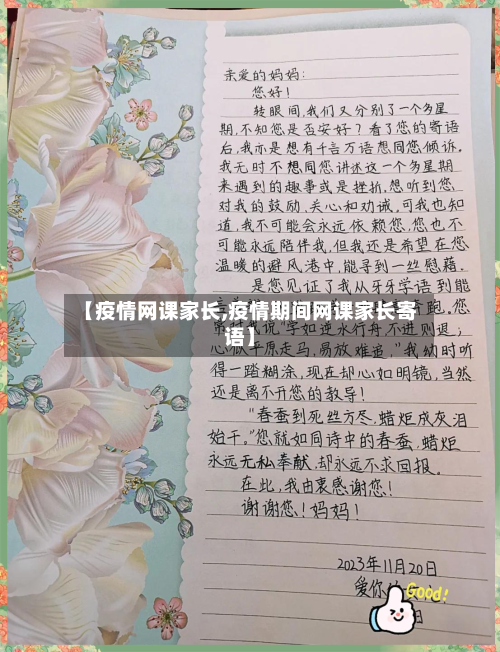 亲爱的妈妈:
您好!
转眼间,我们又分别了一个多星
期,不知您是否安好?看了您的寄语
后,我亦是想有千言万语想同您倾诉。
我无时不想同您讲述这一个多星期
来遇到的趣事或是挫折,想听到您
对我的鼓励、关心和劝诫,可我也知
道,我不可能会永远依赖您,您也不
可能永远陪伴我,但我还是希望在您
温暖的避风港中,能寻到一丝慰藉。
是您见证了我从牙牙学语到能
跑,您
【疫情网课家长,疫情期间网课家长寄
语】
说"学如逆水行舟,不进则退;
心似平原走马,易放难追,"我幼时听
得一踏糊涂,现在却心如明镜,当然
还是离不开您的教导!
"春蚕到死丝方尽,蜡炬成灰泪
始干。"您就如同诗中的春蚕,蜡炬
永远无私奉献,却永远不求回报。
在此,我由衷感谢您!
谢谢您!妈妈!
2023年11月20日
爱你
Good!
日